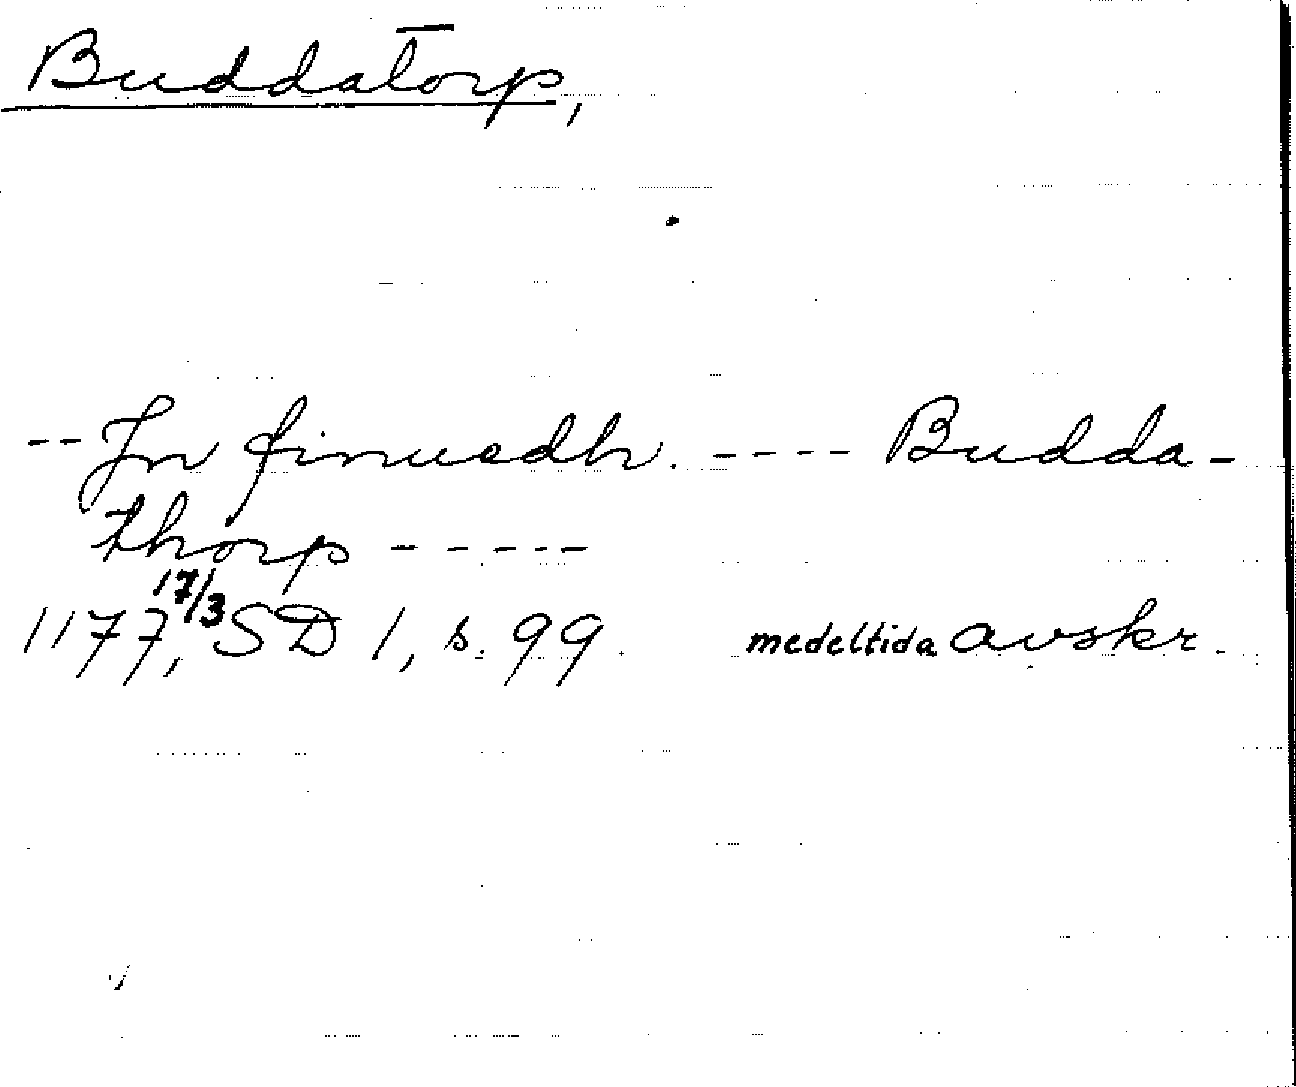 Buddatorp,
-- In finuedh. ---- Budda-
thorp -----
1177, 17/3 SD 1, s. 99. medeltida avskr.